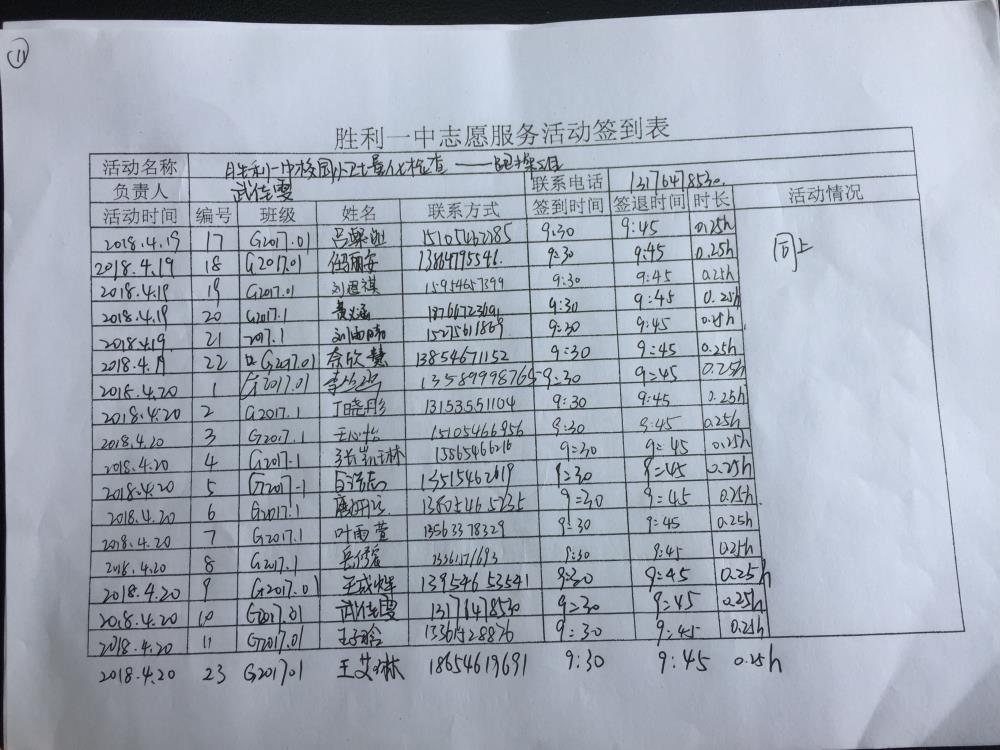 11
胜利一中志愿服务活动签到表
活动名称 胜利一中校园小卫士量化检查——
负责人 武佳雯 联系电话 13176478530.
活动时间 编号 班级 姓名 联系方式 签到时间 签退时间 时长 活动情况
2018.4.19 17 G2017.01 15105462285 9:30 9:45 0.25h 同上
2018.4.19 18 G2017.01 任丽安 13864795546. 9:30 9:45 0.25h
2018.4.19 19 G2017.01 15954657399 9:30 9:45 0.25h
2018.4.19 20 G2017.1 9:30 9:45 0.25h
2018.4.19 21 2017.1 15275611869 9:30 9:45 0.25h
2018.4.19 22 G2017.01 13854671152 9:30 9:45 0.25h
2018.4.20 1 G2017.01 13589998765 9:30 9:45 0.25h
2018.4.20 2 G2017.1 丁晓彤 13153551104 9:30 9:45 0.25h
2018.4.20 3 G2017.1 王心怡 15105466956 9:30 9:45 0.25h
2018.4.20 4 G2017.1 15865466216 9:30 9:45 0.25h
2018.4.20 5 G2017.1 13515462619 9:30 9:45 0.25h
2018.4.20 6 G2017.1 13805465235 9:30 9:45 0.25h
2018.4.20 7 G2017.1 叶雨萱 13563378329 9:30 9:45 0.25h
2018.4.20 8 G2017.1 9:30 9:45 0.25h
2018.4.20 9 G2017.01 王成辉 13954653541 9:30 9:45 0.25h
2018.4.20 10 G2017.01 武佳雯 13176478530 9:30 9:45 0.25h
2018.4.20 11 G2017.01 9:30 9:45 0.25h
2018.4.20 23 G201701 王艾琳 18654619691 9:30 9:45 0.25h